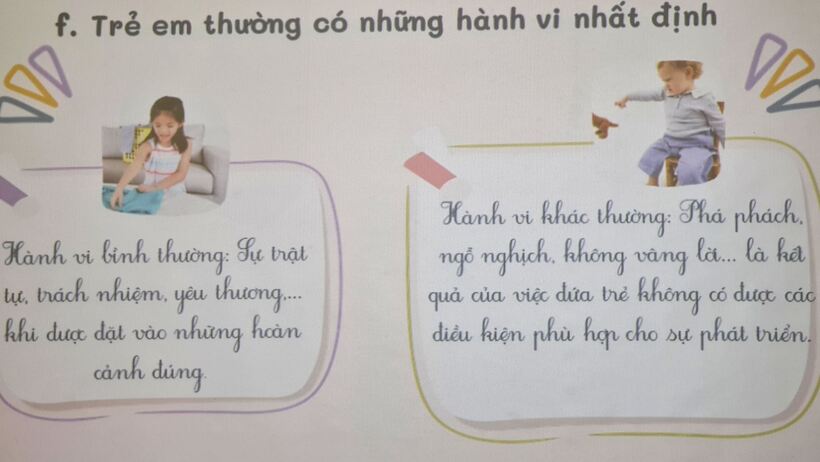 f. Trẻ em thường có những hành vi nhất định
Hành vi bình thường: Sự trật
tự, trách nhiệm, yêu thương,...
khi được đặt vào những hoàn
cảnh đúng.
Hành vi khác thường: Phá phách,
ngỗ nghịch, không vâng lời... là kết
quả của việc đứa trẻ không có được các
điều kiện phù hợp cho sự phát triển.